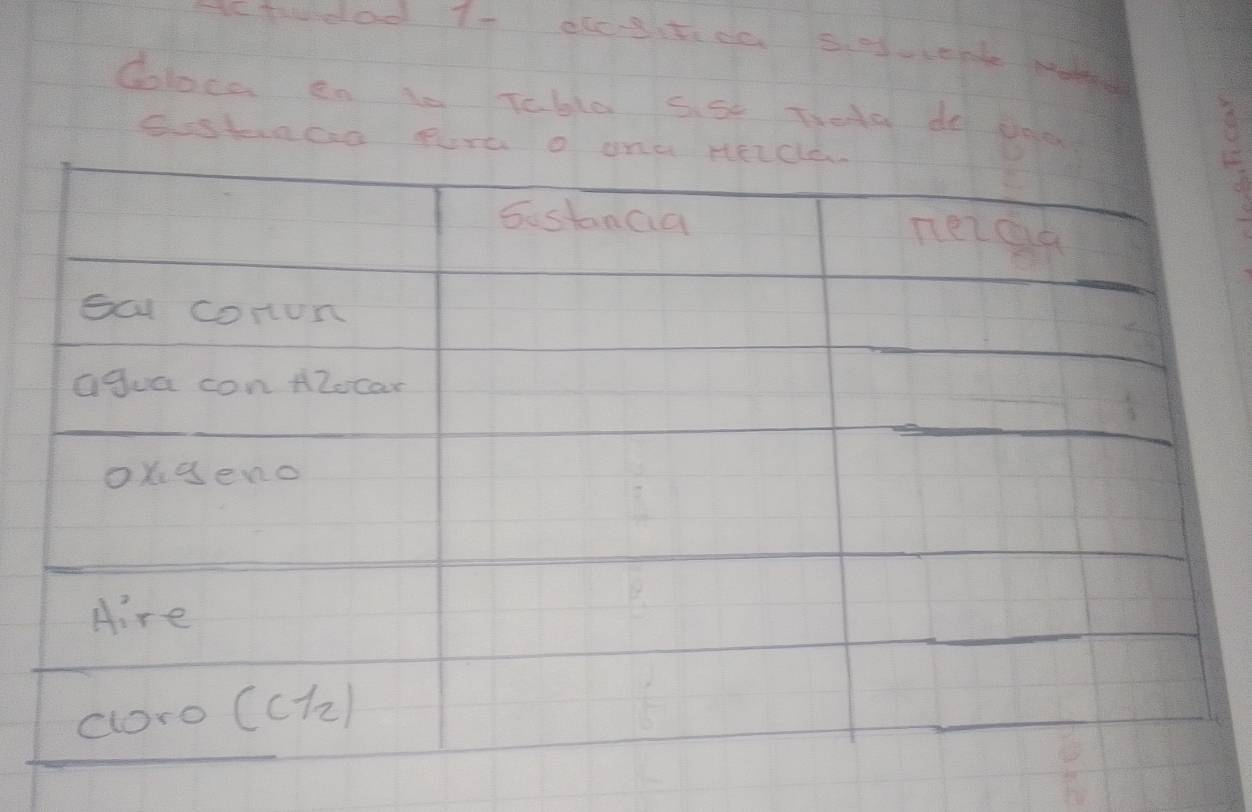 Actividad 1- clasifica siguiente
Coloca en la Tabla si se Trata de una
Sustancia Pura o una Mezcla.
Sustancia Mezcla
Sal comun
agua con Azucar
oxigeno
Aire
cloro (Cl2)
clasificar